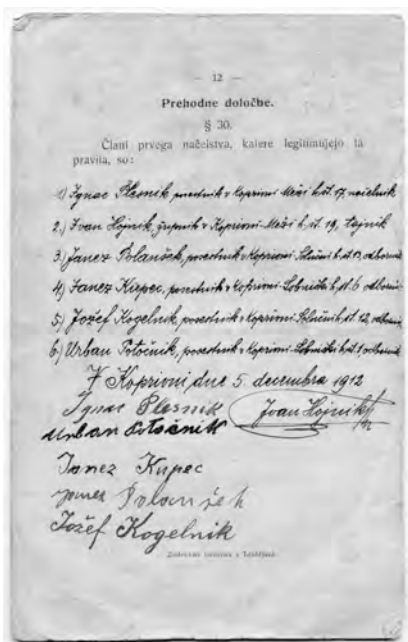 — 12 —
Prehodne določbe.
§ 30.
Člani prvega načelstva, katere legitimujejo ta
pravila, so:
1) Ignac Plesnik, posestnik v Koprivni-Meži h. št. 17, načelnik
2.) Ivan Hojnik, župnik v Koprivni-Meži h. št. 19, tajnik
3.) Janez Polanšek, posestnik v Koprivni h. št. odbornik
4) Janez Kupec, posestnik v Koprivni h. št. 6 odbornik
5.) Jožef Kogelnik, posestnik v Koprivni h. št. 12, odbornik
6.) Urban Potočnik, posestnik v Koprivni h. št. 1 odbornik
V Koprivni dne 5. decembra 1912
Ignac Plesnik Ivan Hojnik
Urban Potočnik
Janez Kupec
Janez Polanšek
Jožef Kogelnik
Zadružna tiskarna v Ljubljani.